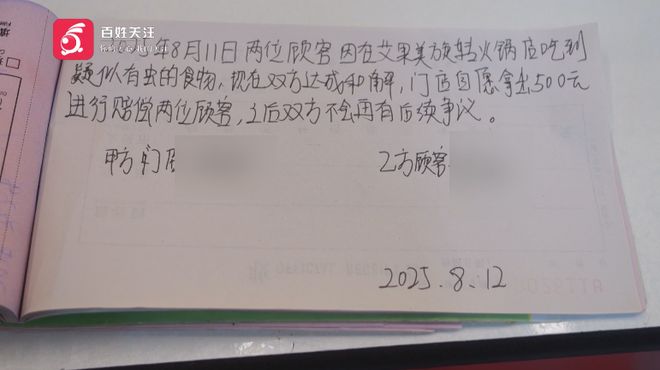 百姓关注
年8月11日两位顾客因在艾果美旋转火锅店吃到
疑似有虫的食物,现在双方达成和解,门店自愿拿出500元
进行赔偿两位顾客,之后双方不会再有后续争议。
甲方:门店
乙方顾客
2025.8.12